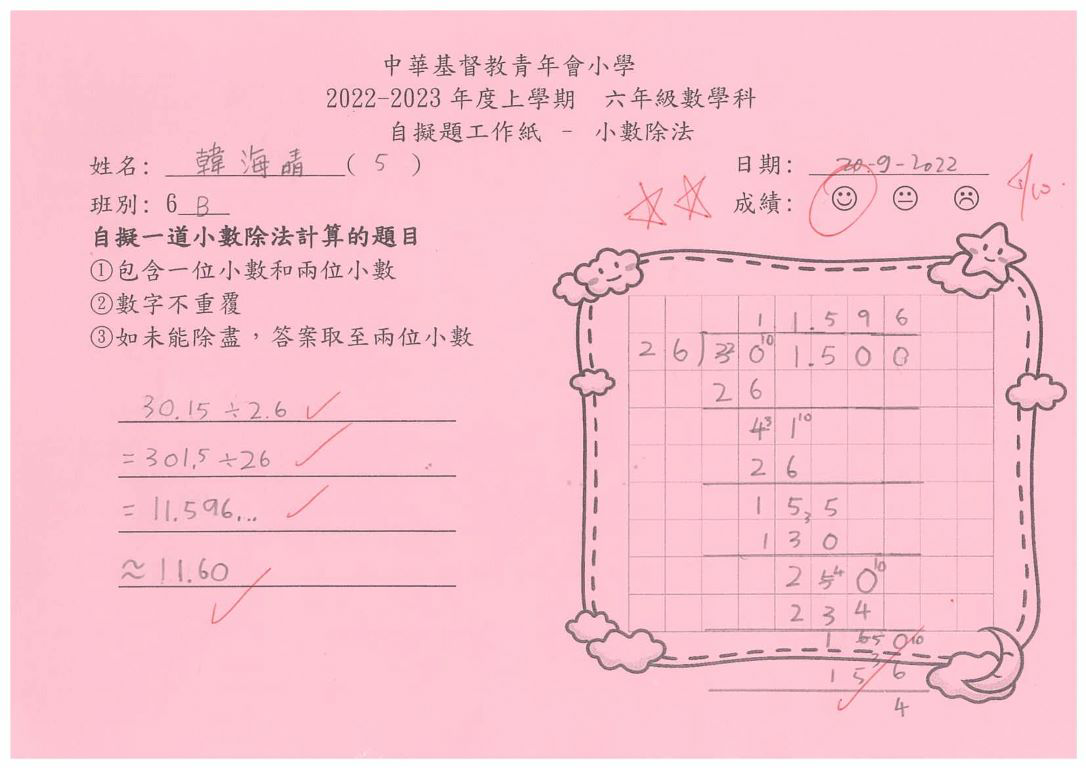 中華基督教青年會小學
2022-2023 年度上學期 六年級數學科
自擬題工作紙 - 小數除法
姓名: 韓海晴 ( 5 )
日期: 20-9-2022
班別: 6 B
成績:
自擬一道小數除法計算的題目
①包含一位小數和兩位小數
②數字不重覆
③如未能除盡，答案取至兩位小數
30.15 ÷ 2.6
= 301.5 ÷ 26
= 11.596...
≈ 11.60
1 1.5 9 6
2 6 ) 3 0 1.5 0 0
2 6
4 1
2 6
1 5 5
1 3 0
2 5 0
2 3 4
1 6 0
1 5 6
4